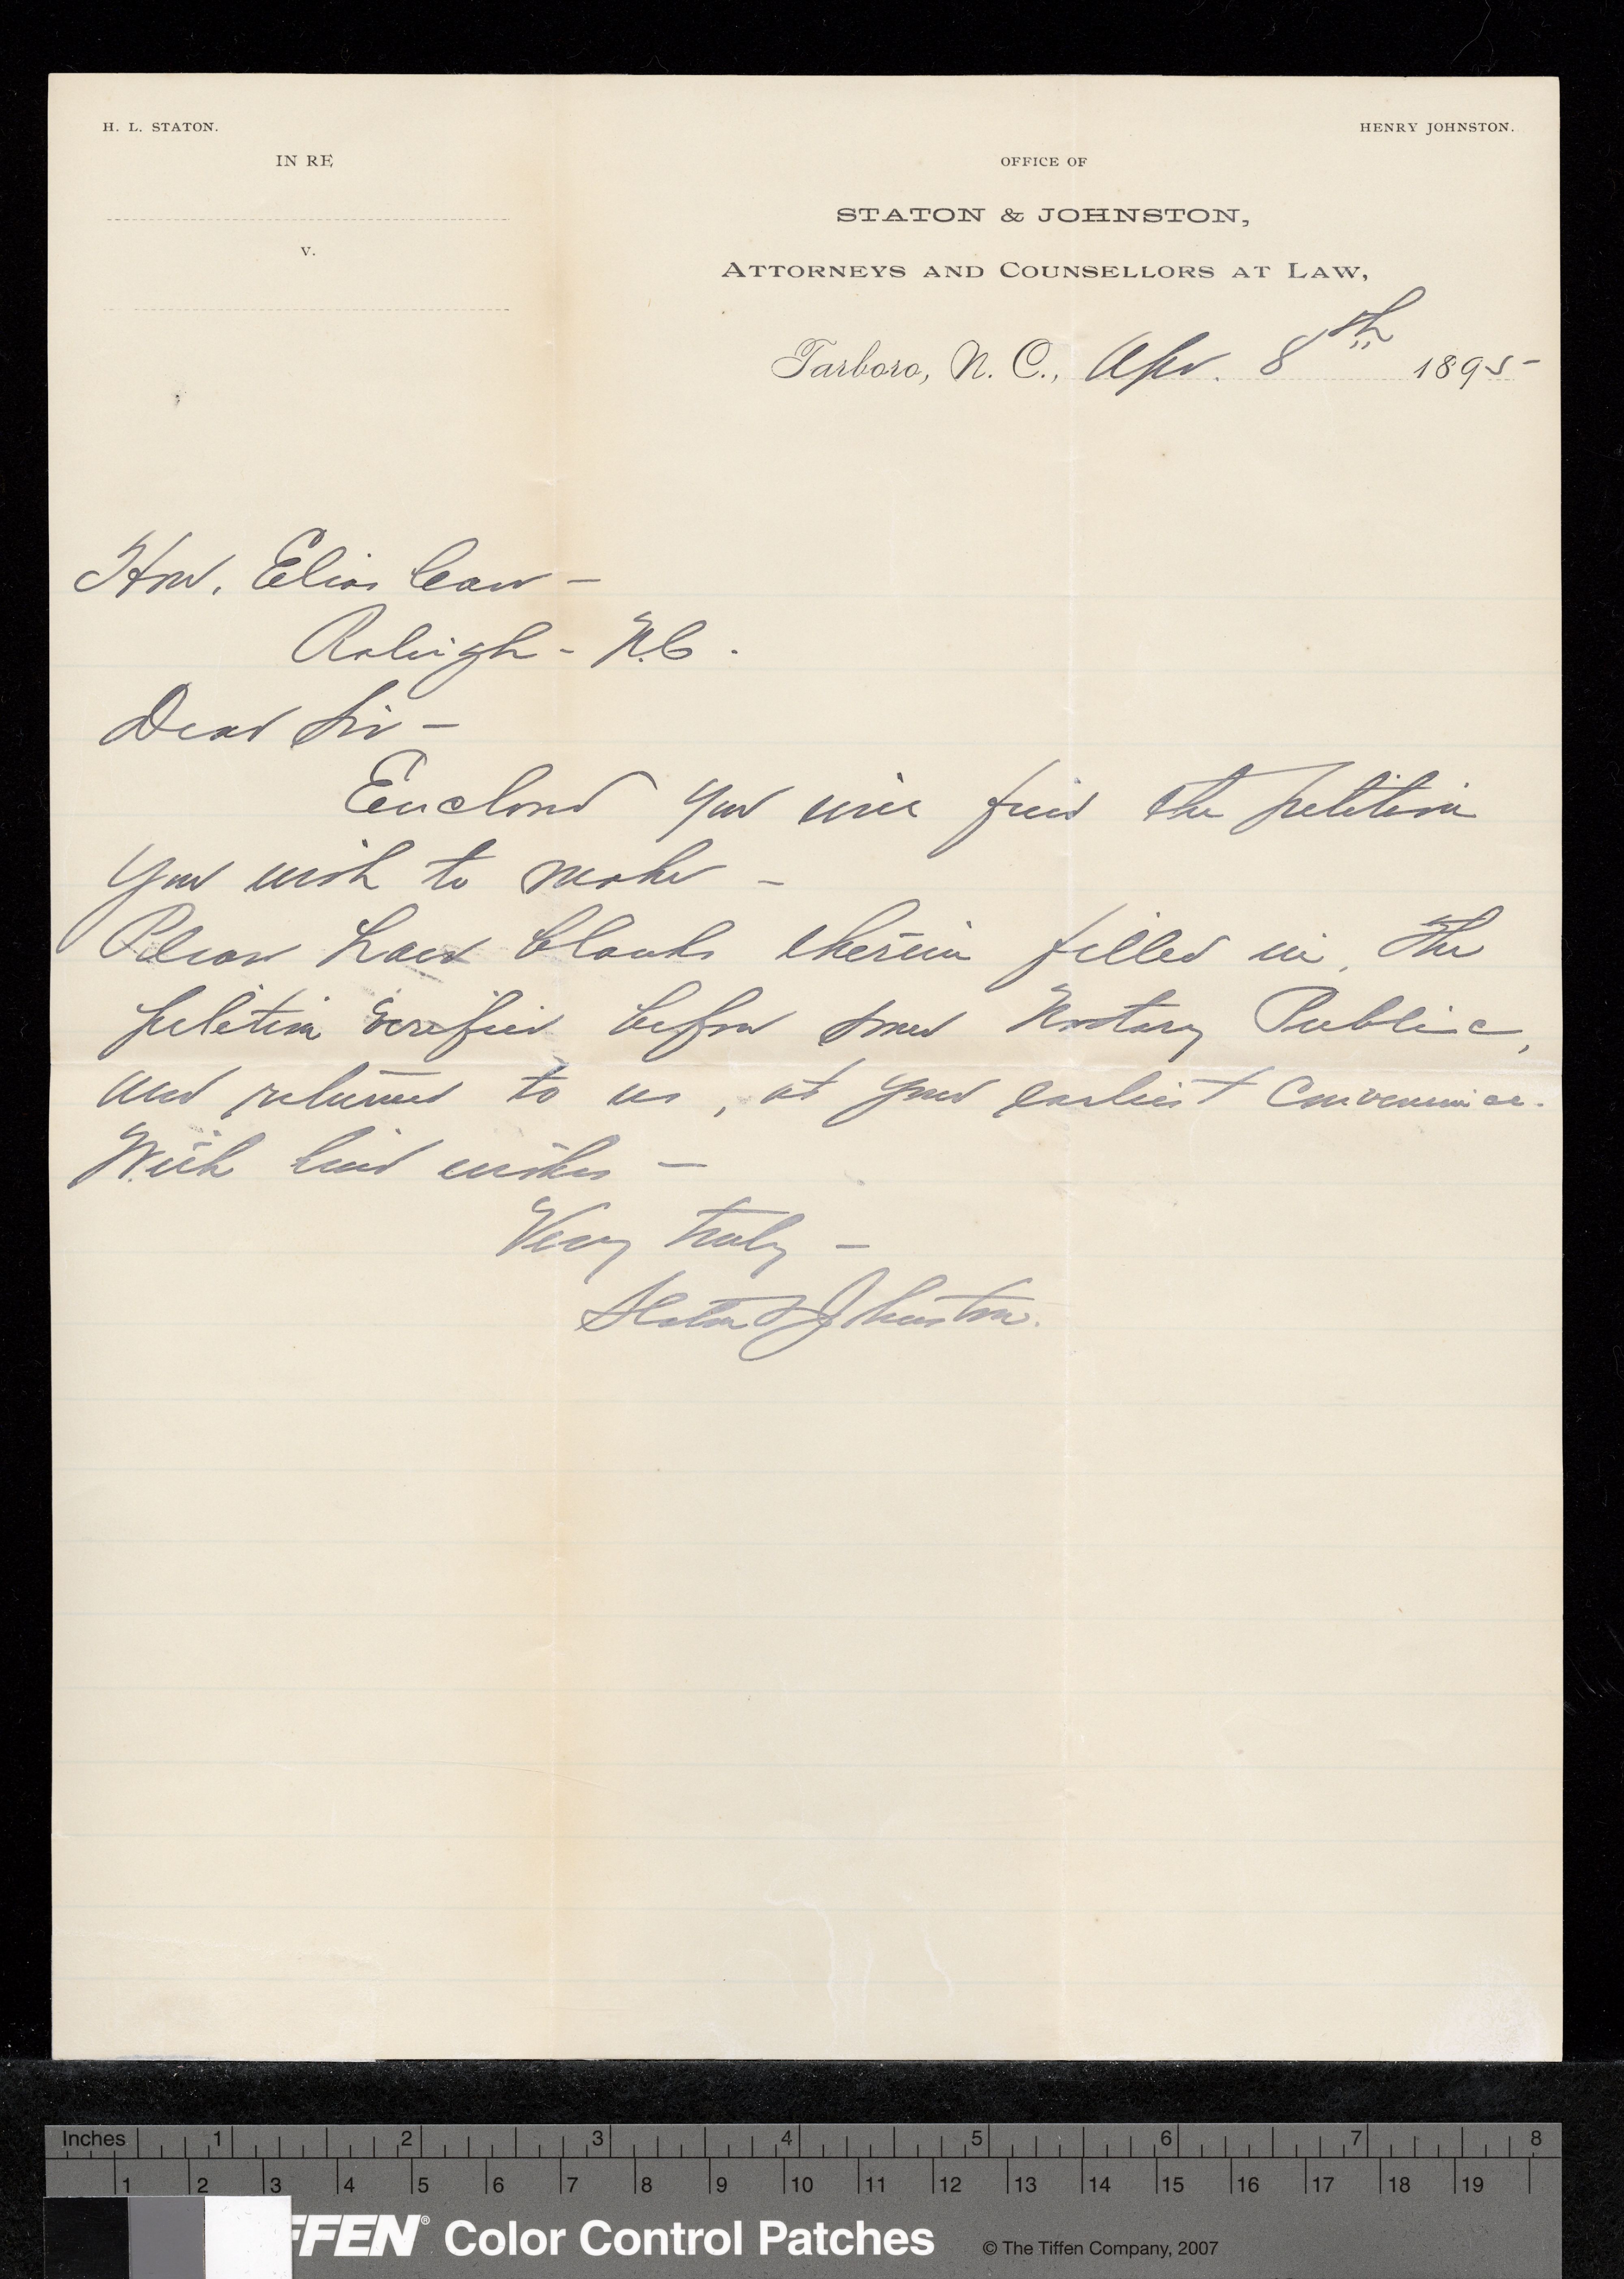 H. L. STATON.
HENRY JOHNSTON.
IN RE
v.
OFFICE OF
STATON & JOHNSTON,
ATTORNEYS AND COUNSELLORS AT LAW,
Tarboro, N. C., Apr. 8th 1895-
Hon. Elias Carr -
Raleigh - N.C.
Dear Sir -
Enclosed you will find the petition
you wish to make -
Please have blanks therein filled in, the
petition verified before some Notary Public,
and returned to us, at your earliest convenience.
With kind wishes -
Very truly -
Staton & Johnston.
Inches 1 2 3 4 5 6 7 8
1 2 3 4 5 6 7 8 9 10 11 12 13 14 15 16 17 18 19
FFEN® Color Control Patches © The Tiffen Company, 2007